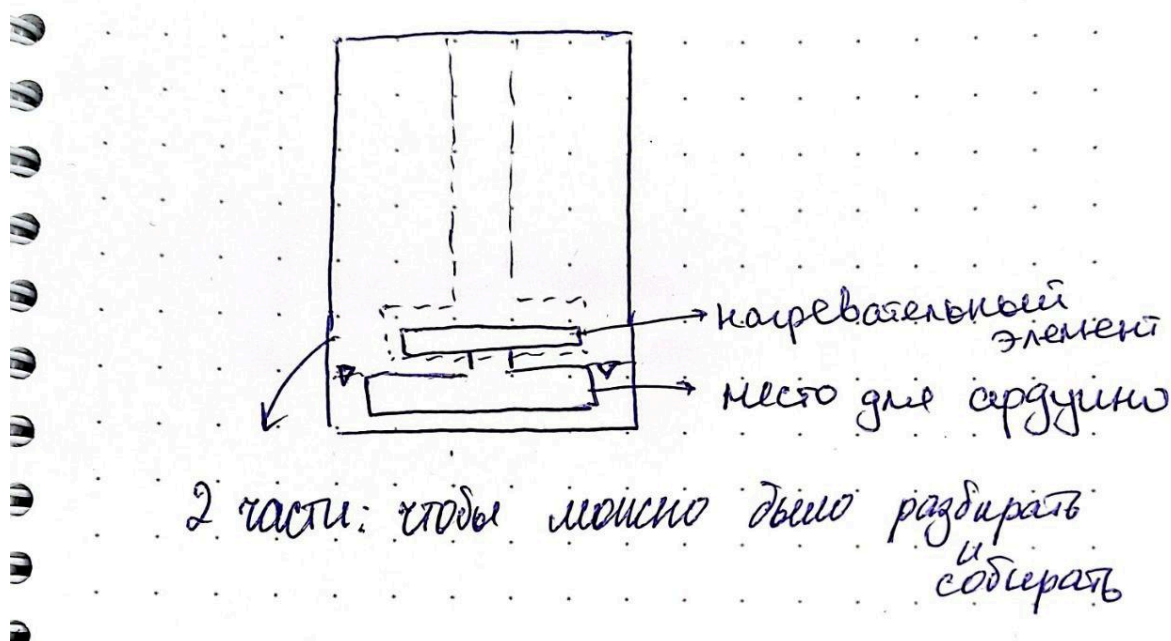 нагревательный
элемент
место для ардуино
2 части: чтобы можно было разбирать
и
собирать